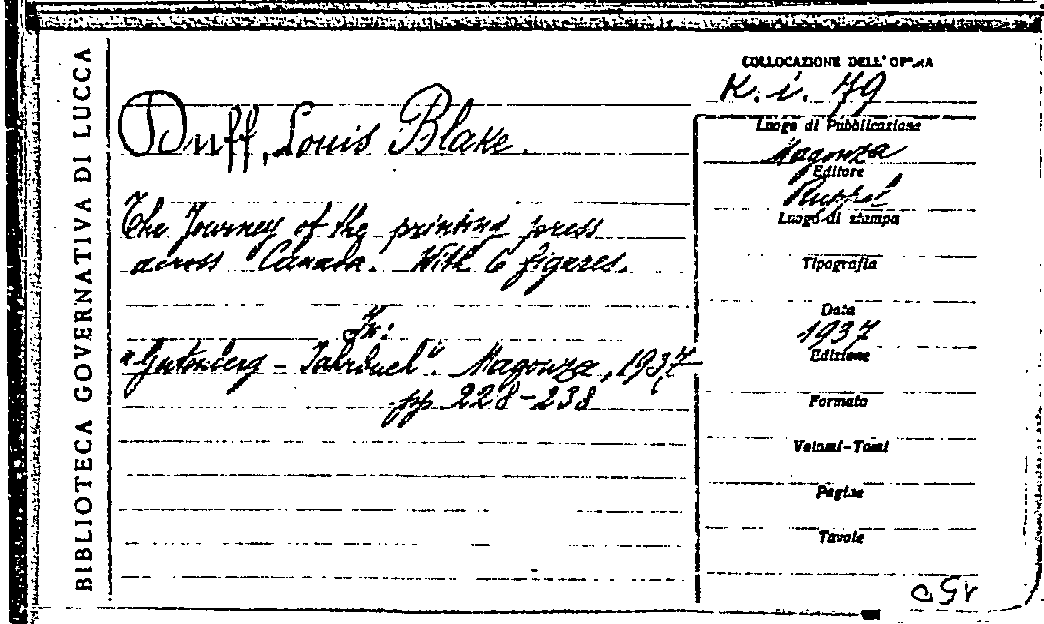 BIBLIOTECA GOVERNATIVA DI LUCCA
Duff, Louis Blake.
The Journey of the printing press
across Canada. With 6 figures.
In:
"Gutenberg - Jahrbuch". Magonza, 1937
pp 228-238
COLLOCAZIONE DELL' OPERA
K. i. 79
Luogo di Pubblicazione
Magonza
Editore
Ruppel
Luogo di stampa
Tipografia
Data
1937
Edizione
Formato
Volumi-Tomi
Pagine
Tavole